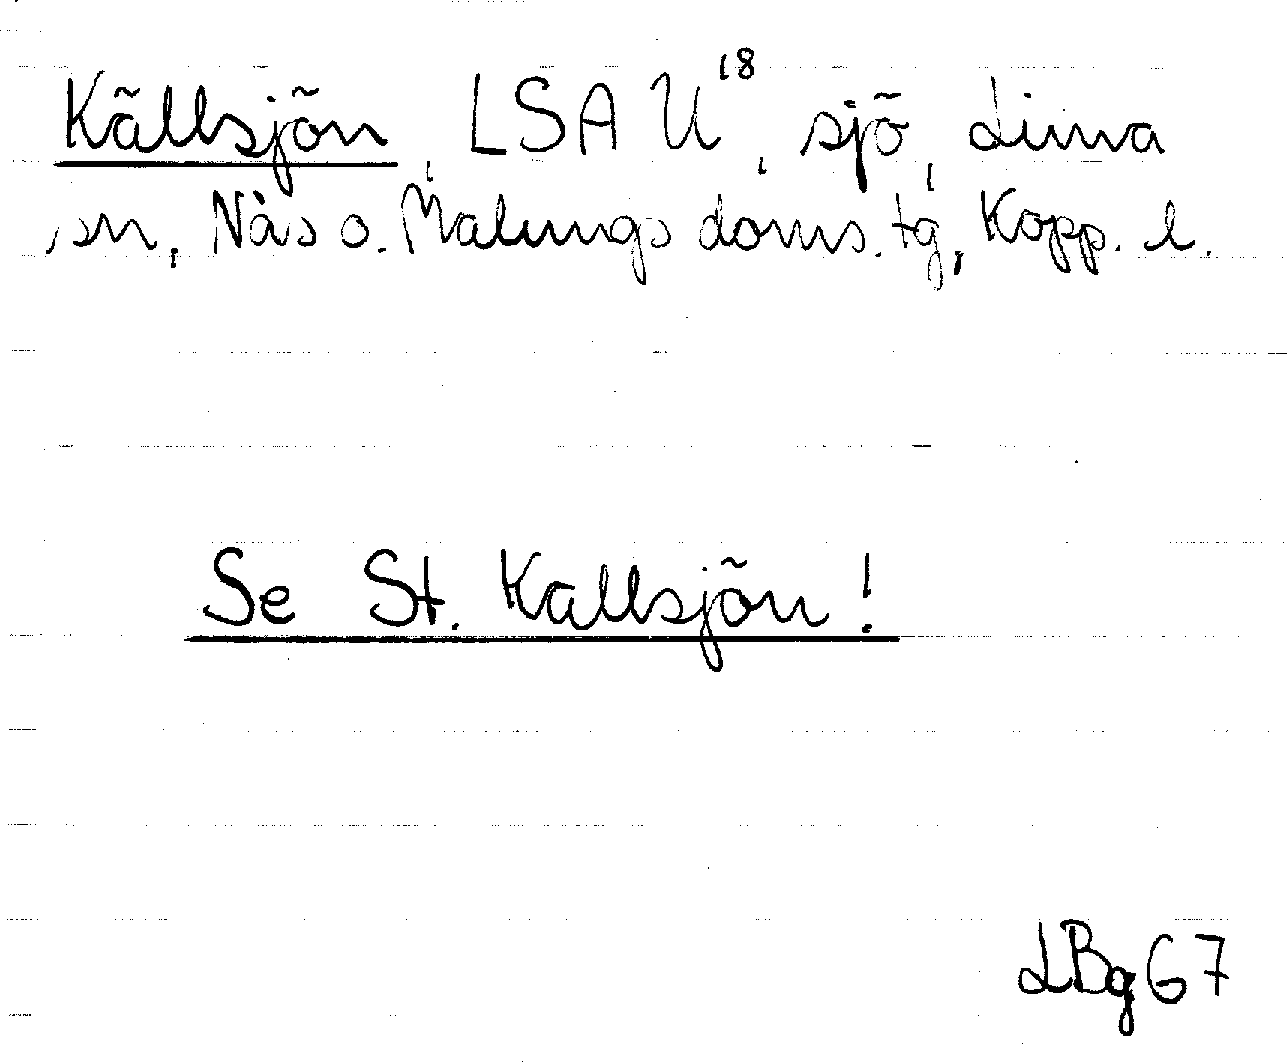 Källsjön, LSA U¹⁸, sjö, Lima
sn, Nås o. Malungs doms. tg, Kopp. l.
Se St. Källsjön!
LBg 67